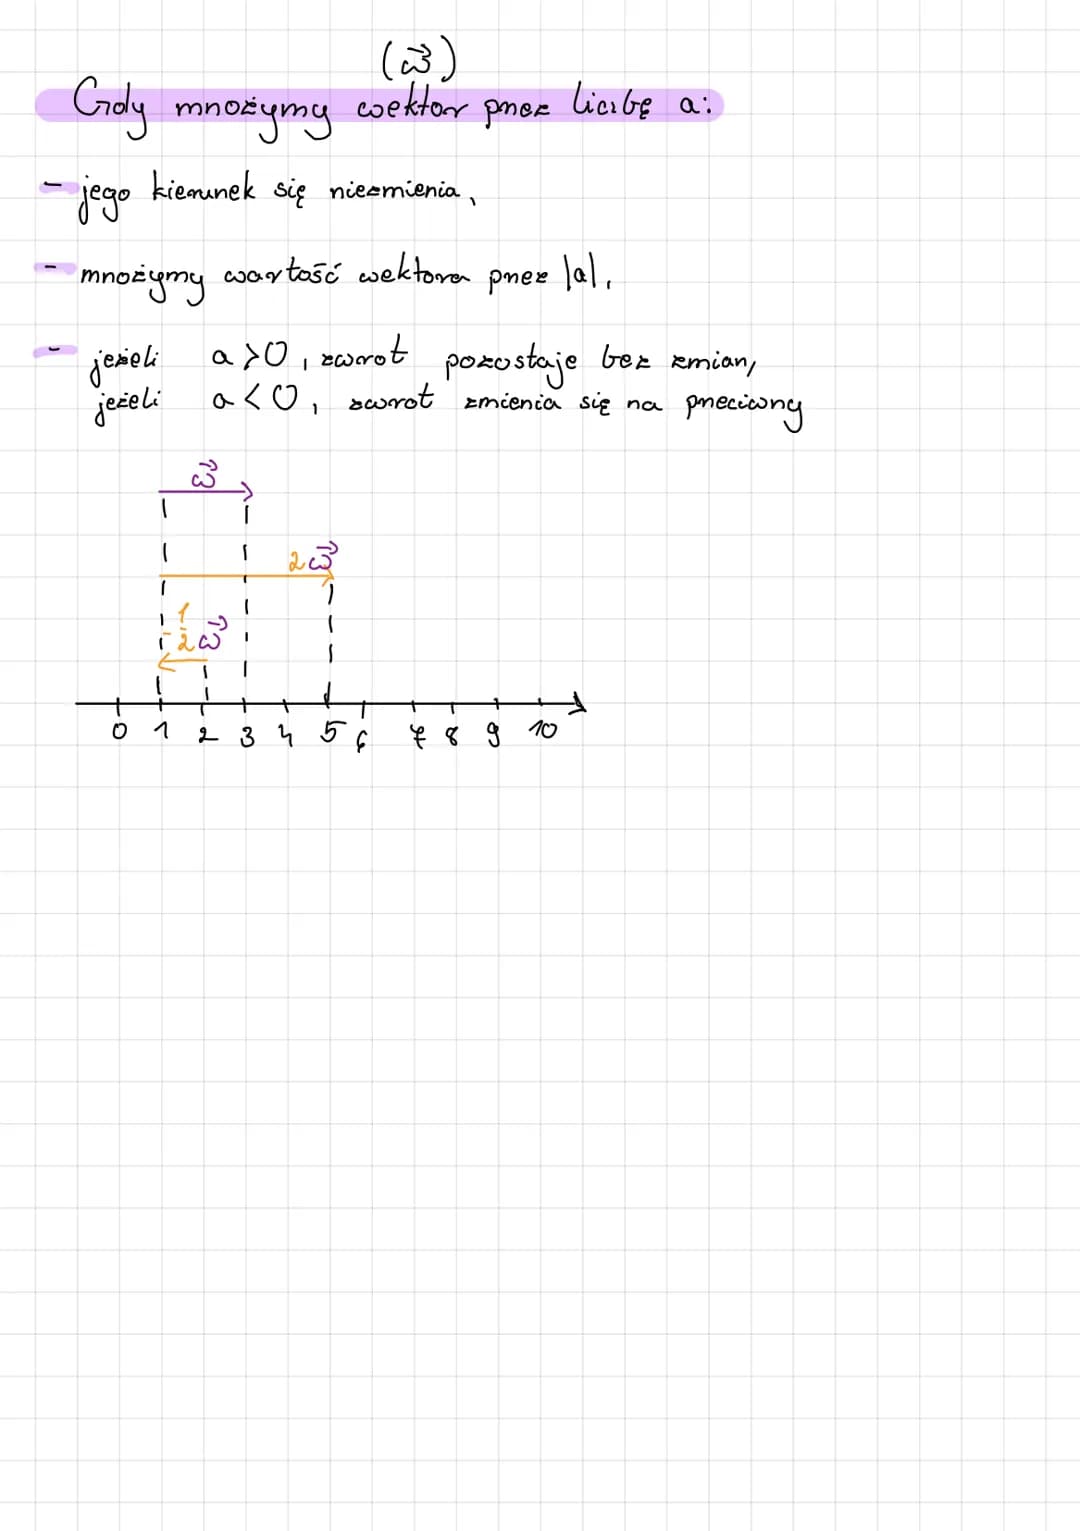 (w⃗)
Gdy mnożymy wektor przez liczbę a:
- jego kierunek się niezmienia,
- mnożymy wartość wektora przez |a|,
- jeżeli a > 0, zwrot pozostaje bez zmian,
jeżeli a < 0, zwrot zmienia się na przeciwny
w⃗
2w⃗
-1/2 w⃗
0 1 2 3 4 5 6 7 8 9 10